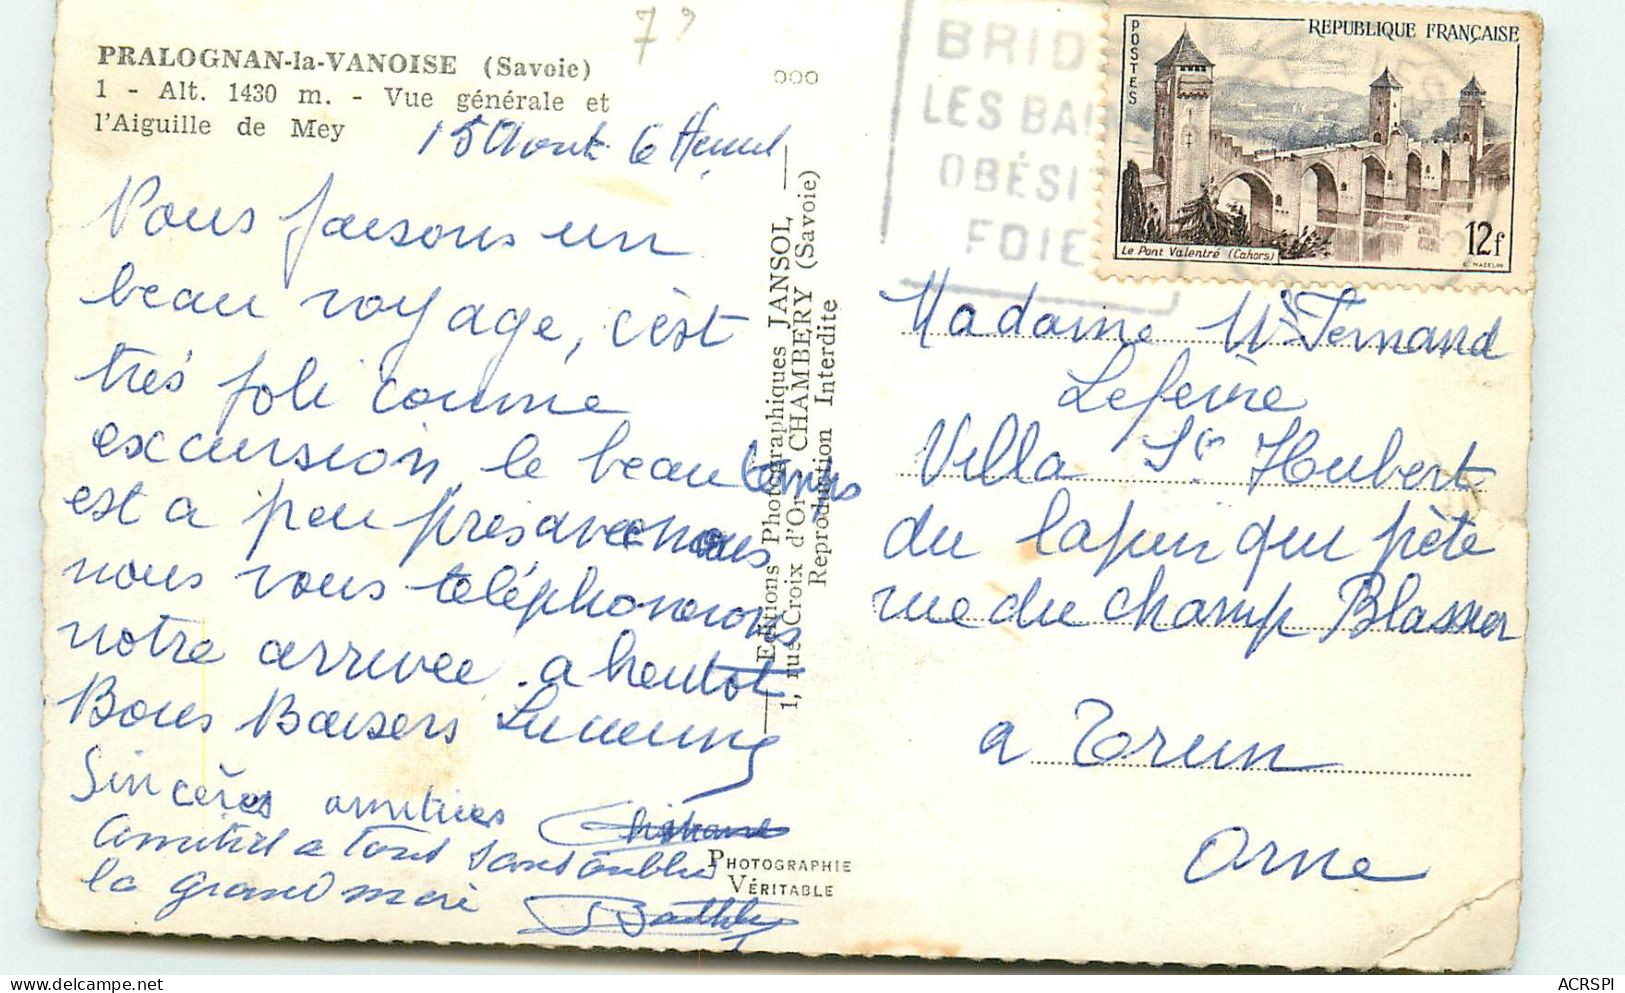 PRALOGNAN-la-VANOISE (Savoie)
1 - Alt. 1430 m. - Vue générale et
l'Aiguille de Mey
15 Aout 6 Heures
Nous faisons un
beau voyage, c'est
très joli comme
excursion, le beau temps
est a peu près avec nous
nous vous téléphonerons
notre arrivée. a bientot
Bons Baisers
Sincères amitiées Christiane
amitié a tous sans oublié
la grand mère
Editions Photographiques JANSOL
1, rue Croix d'Or, CHAMBÉRY (Savoie)
Reproduction Interdite
PHOTOGRAPHIE
VÉRITABLE
ooo
BRID
LES BAIN
OBÉSI
FOIE
POSTES
REPUBLIQUE FRANÇAISE
Le Pont Valentré (Cahors)
12f
C. MAZELIN
Madame Mr Fernand
Lefeivre
Villa St Hubert
du lapin qui pète
rue du champ
a Trun
Orne
ACRSPI